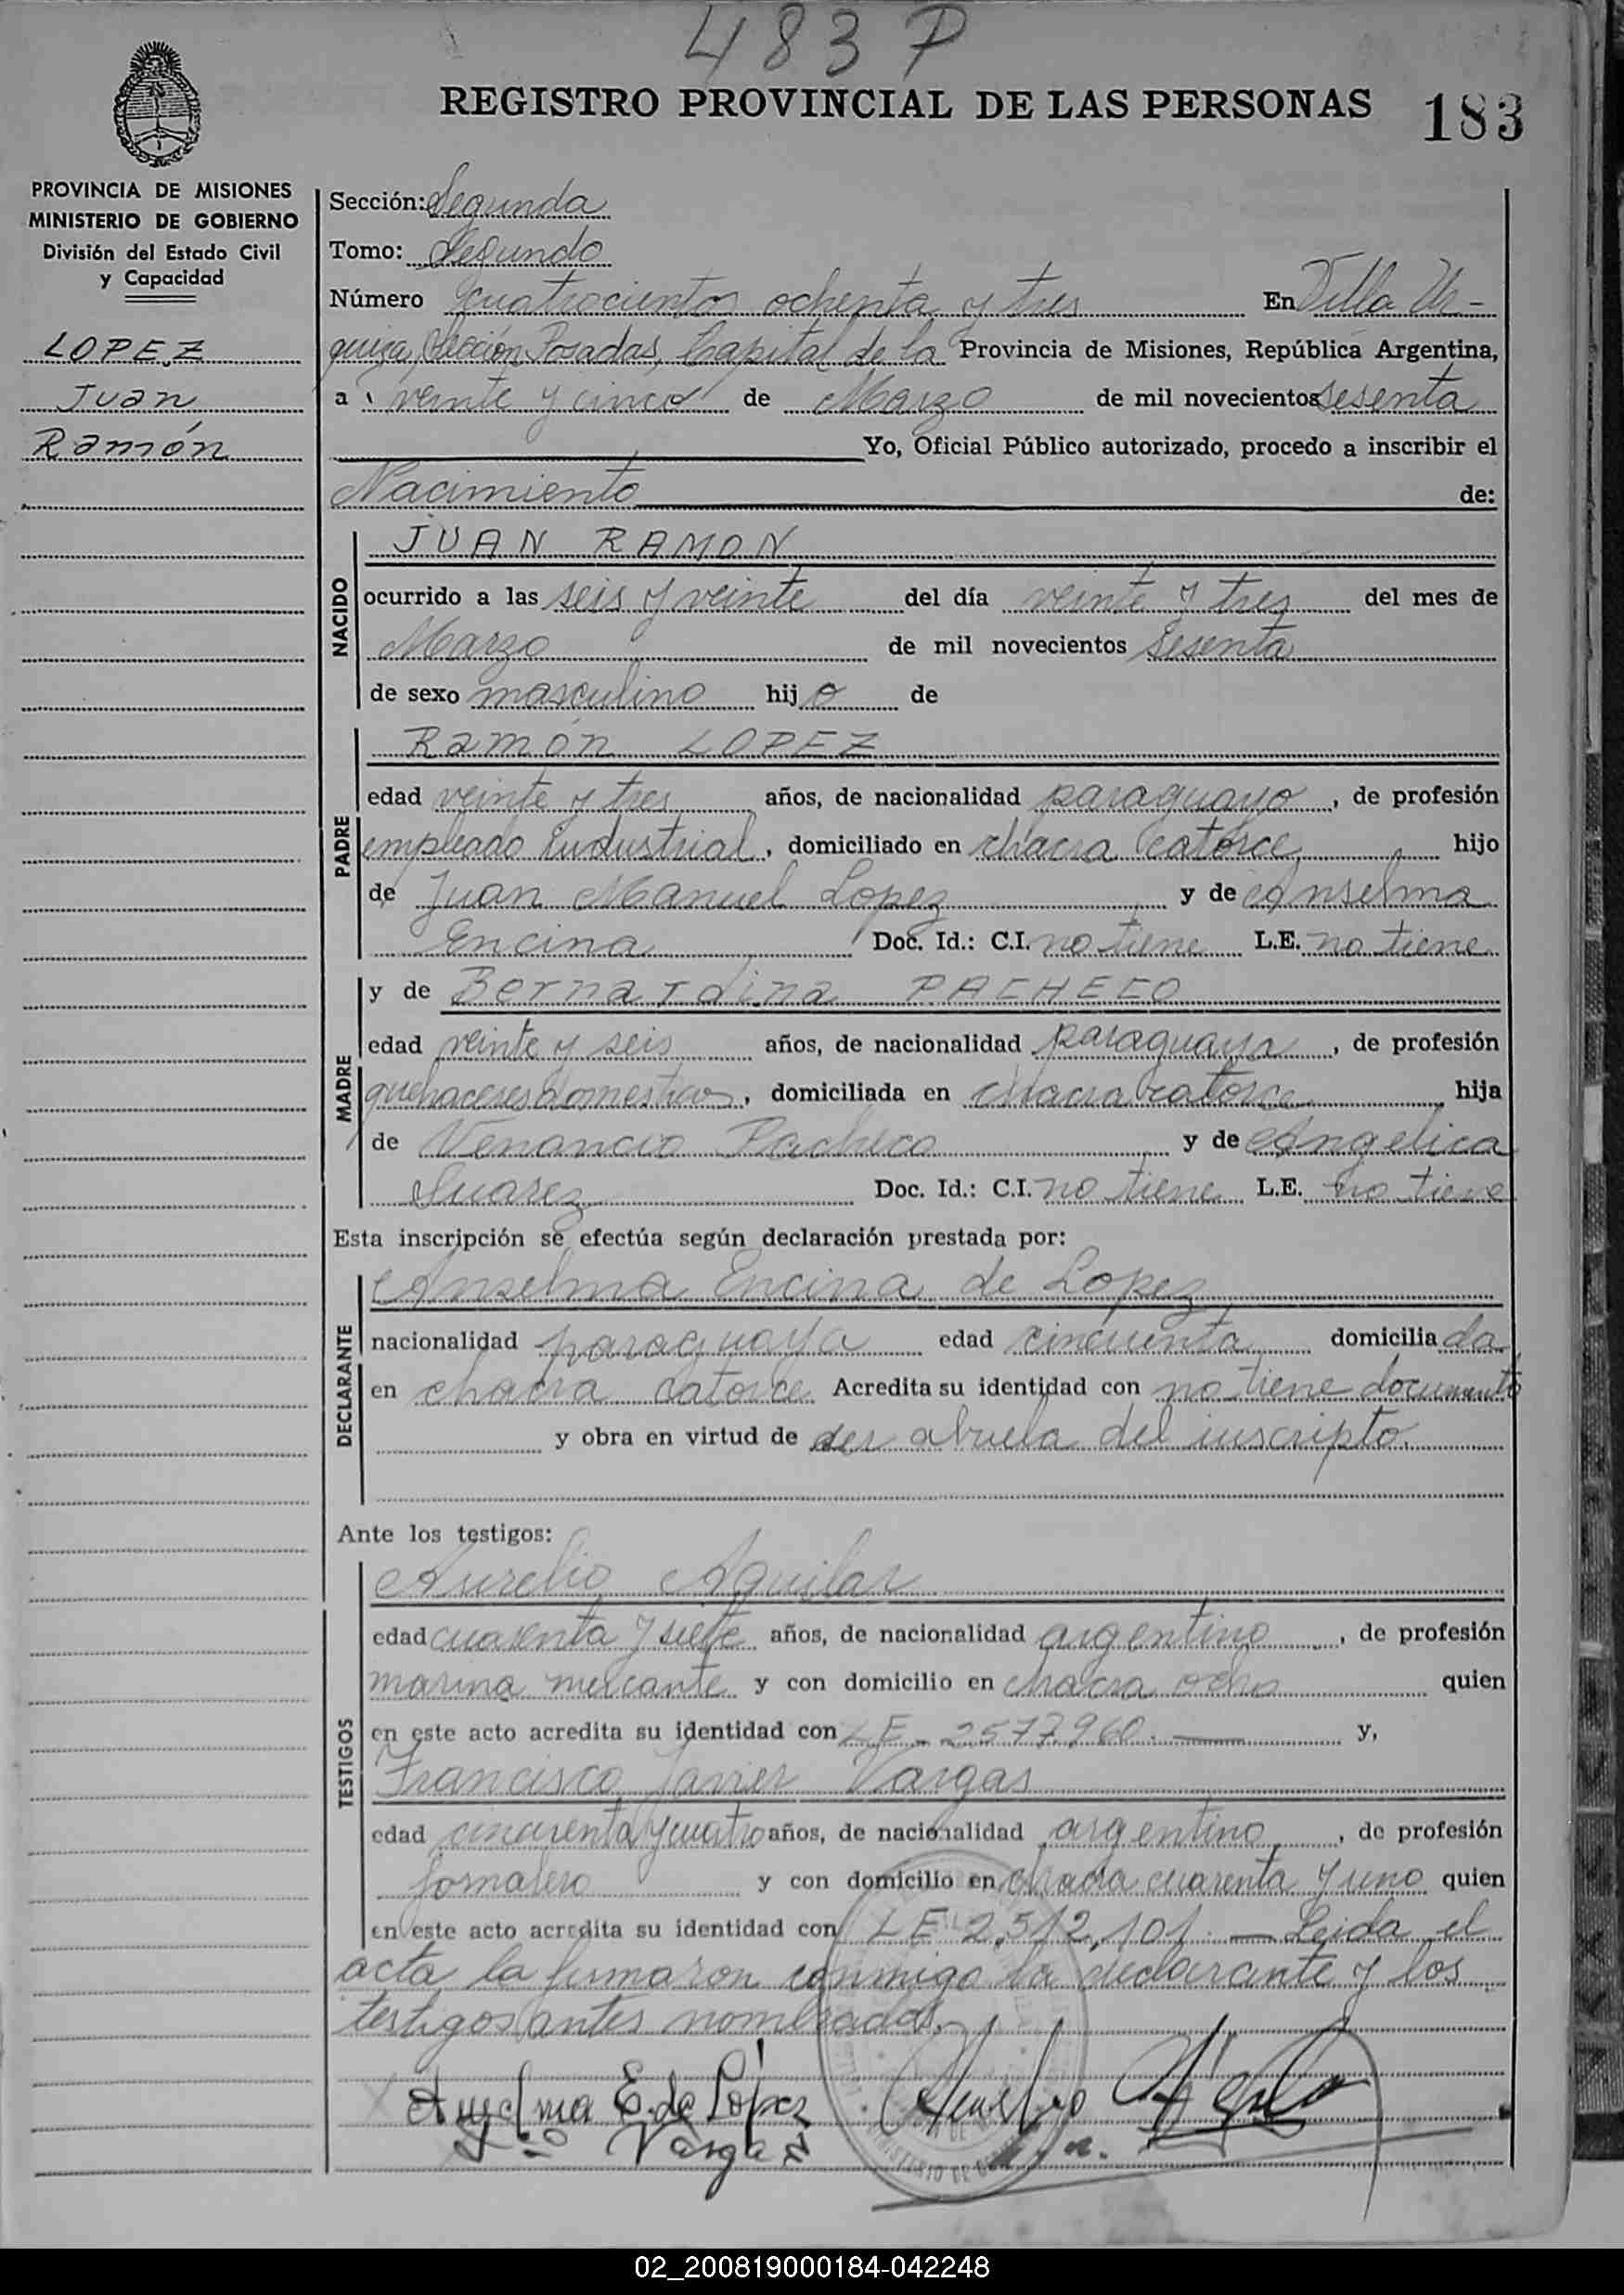 483 P
REGISTRO PROVINCIAL DE LAS PERSONAS 183
PROVINCIA DE MISIONES
MINISTERIO DE GOBIERNO
División del Estado Civil
y Capacidad
LOPEZ
Juan
Ramón
Sección: Segunda
Tomo: Segundo
Número cuatrocientos ochenta y tres En Villa Ur-
quiza, Sección Posadas, Capital de la Provincia de Misiones, República Argentina,
a veinte y cinco de Marzo de mil novecientos sesenta
Yo, Oficial Público autorizado, procedo a inscribir el
Nacimiento de:
NACIDO
JUAN RAMON
ocurrido a las seis y veinte del día veinte y tres del mes de
Marzo de mil novecientos sesenta
de sexo masculino hijo de
PADRE
Ramón LOPEZ
edad veinte y tres años, de nacionalidad paraguayo, de profesión
empleado industrial, domiciliado en chacra catorce hijo
de Juan Manuel Lopez y de Anselma
Encina Doc. Id.: C.I. no tiene L.E. no tiene
MADRE
y de Bernardina PACHECO
edad veinte y seis años, de nacionalidad paraguaya, de profesión
quehaceres domesticos, domiciliada en chacra catorce hija
de Venancio Pacheco y de Angelica
Suarez Doc. Id.: C.I. no tiene L.E. no tiene
Esta inscripción se efectúa según declaración prestada por:
DECLARANTE
Anselma Encina de Lopez
nacionalidad paraguaya edad cincuenta domiciliada
en chacra catorce Acredita su identidad con no tiene documento
y obra en virtud de ser abuela del inscripto.
Ante los testigos:
TESTIGOS
Aurelio Aguilar
edad cuarenta y siete años, de nacionalidad argentino, de profesión
marina mercante y con domicilio en chacra ocho quien
en este acto acredita su identidad con LE - 2577.960. y,
Francisco Javier Vargas
edad cincuenta y cuatro años, de nacionalidad argentino, de profesión
jornalero y con domicilio en chacra cuarenta y uno quien
en este acto acredita su identidad con LE 2,512,101. Leida el
acta la firmaron conmigo la declarante y los
testigos antes nombrados.
Anselma E. de López
Vargas
02_200819000184-042248